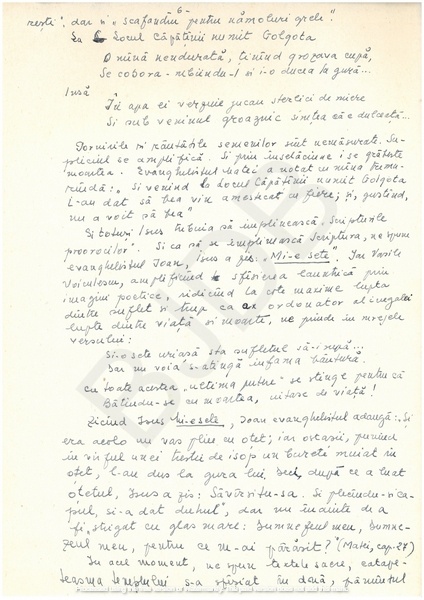 - 6 -
rești", dar și „scafandru pentru nămoluri grele".
La Locul Căpățînii numit Golgota
O mînă nendurată, ținînd grozava cupă,
Se cobora-mbiindu-l și i-o ducea la gură...
Însă
În apa ei verzuie jucau sterlici de miere
Și sub veninul groaznic simțea că e dulceață...
Torturile și răutățile semenilor sînt nemăsurate. Su-
pliciul se amplifică. Și prin înșelăciune i se grăbește
moartea. Evanghelistul Matei a notat cu mîna tremu-
rîndă: „Și venind la Locul Căpățînii numit Golgota
L-au dat să bea vin amestecat cu fiere; și, gustînd,
nu a voit să bea"
Și totuși Isus trebuia să împlinească „Scripturile
proorocilor". Și ca să se împlinească Scriptura, ne spune
evanghelistul Joan, Isus a zis: „Mi-e sete". Iar Vasile
Voiculescu, amplificînd sfîșierea lăuntrică prin
imagini poetice, ridicînd la cote maxime lupta
dintre suflet și trup ca ordonator al inegalei
lupte dintre viață și moarte, ne prinde în mrejele
versului:
Și-o sete uriașă sta sufletul să-i rupă...
Dar nu voia s-atingă infama băutură.
cu toate acestea, „ultima putere" se stinge pentru că
Bătîndu-se cu moartea, uitase de viață!
Zicînd Isus Mi-e sete, Joan evanghelistul adaugă: „Și
era acolo un vas plin cu oțet; iar ostașii, punînd
în vîrful unei trestii de isop un burete muiat în
oțet, l-au dus la gura lui. Deci, după ce a luat
oțetul, Isus a zis: Săvîrșitu-s-a. Și plecîndu-și ca-
pul, și-a dat duhul", dar nu înainte de a
fi „strigat cu glas mare: Dumnezeul meu, Dumne-
zeul meu, pentru ce m-ai părăsit?" (Matei, cap. 27)
În acel moment, ne spun textele sacre, catape-
teasma templului s-a sfîșiat în două, pămîntul